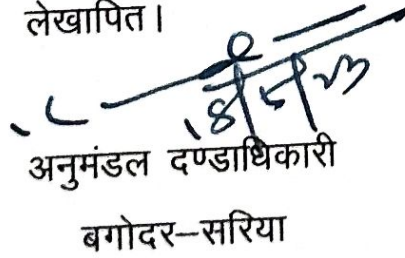 लेखापित।
18/5/23
अनुमंडल दण्डाधिकारी
बगोदर–सरिया